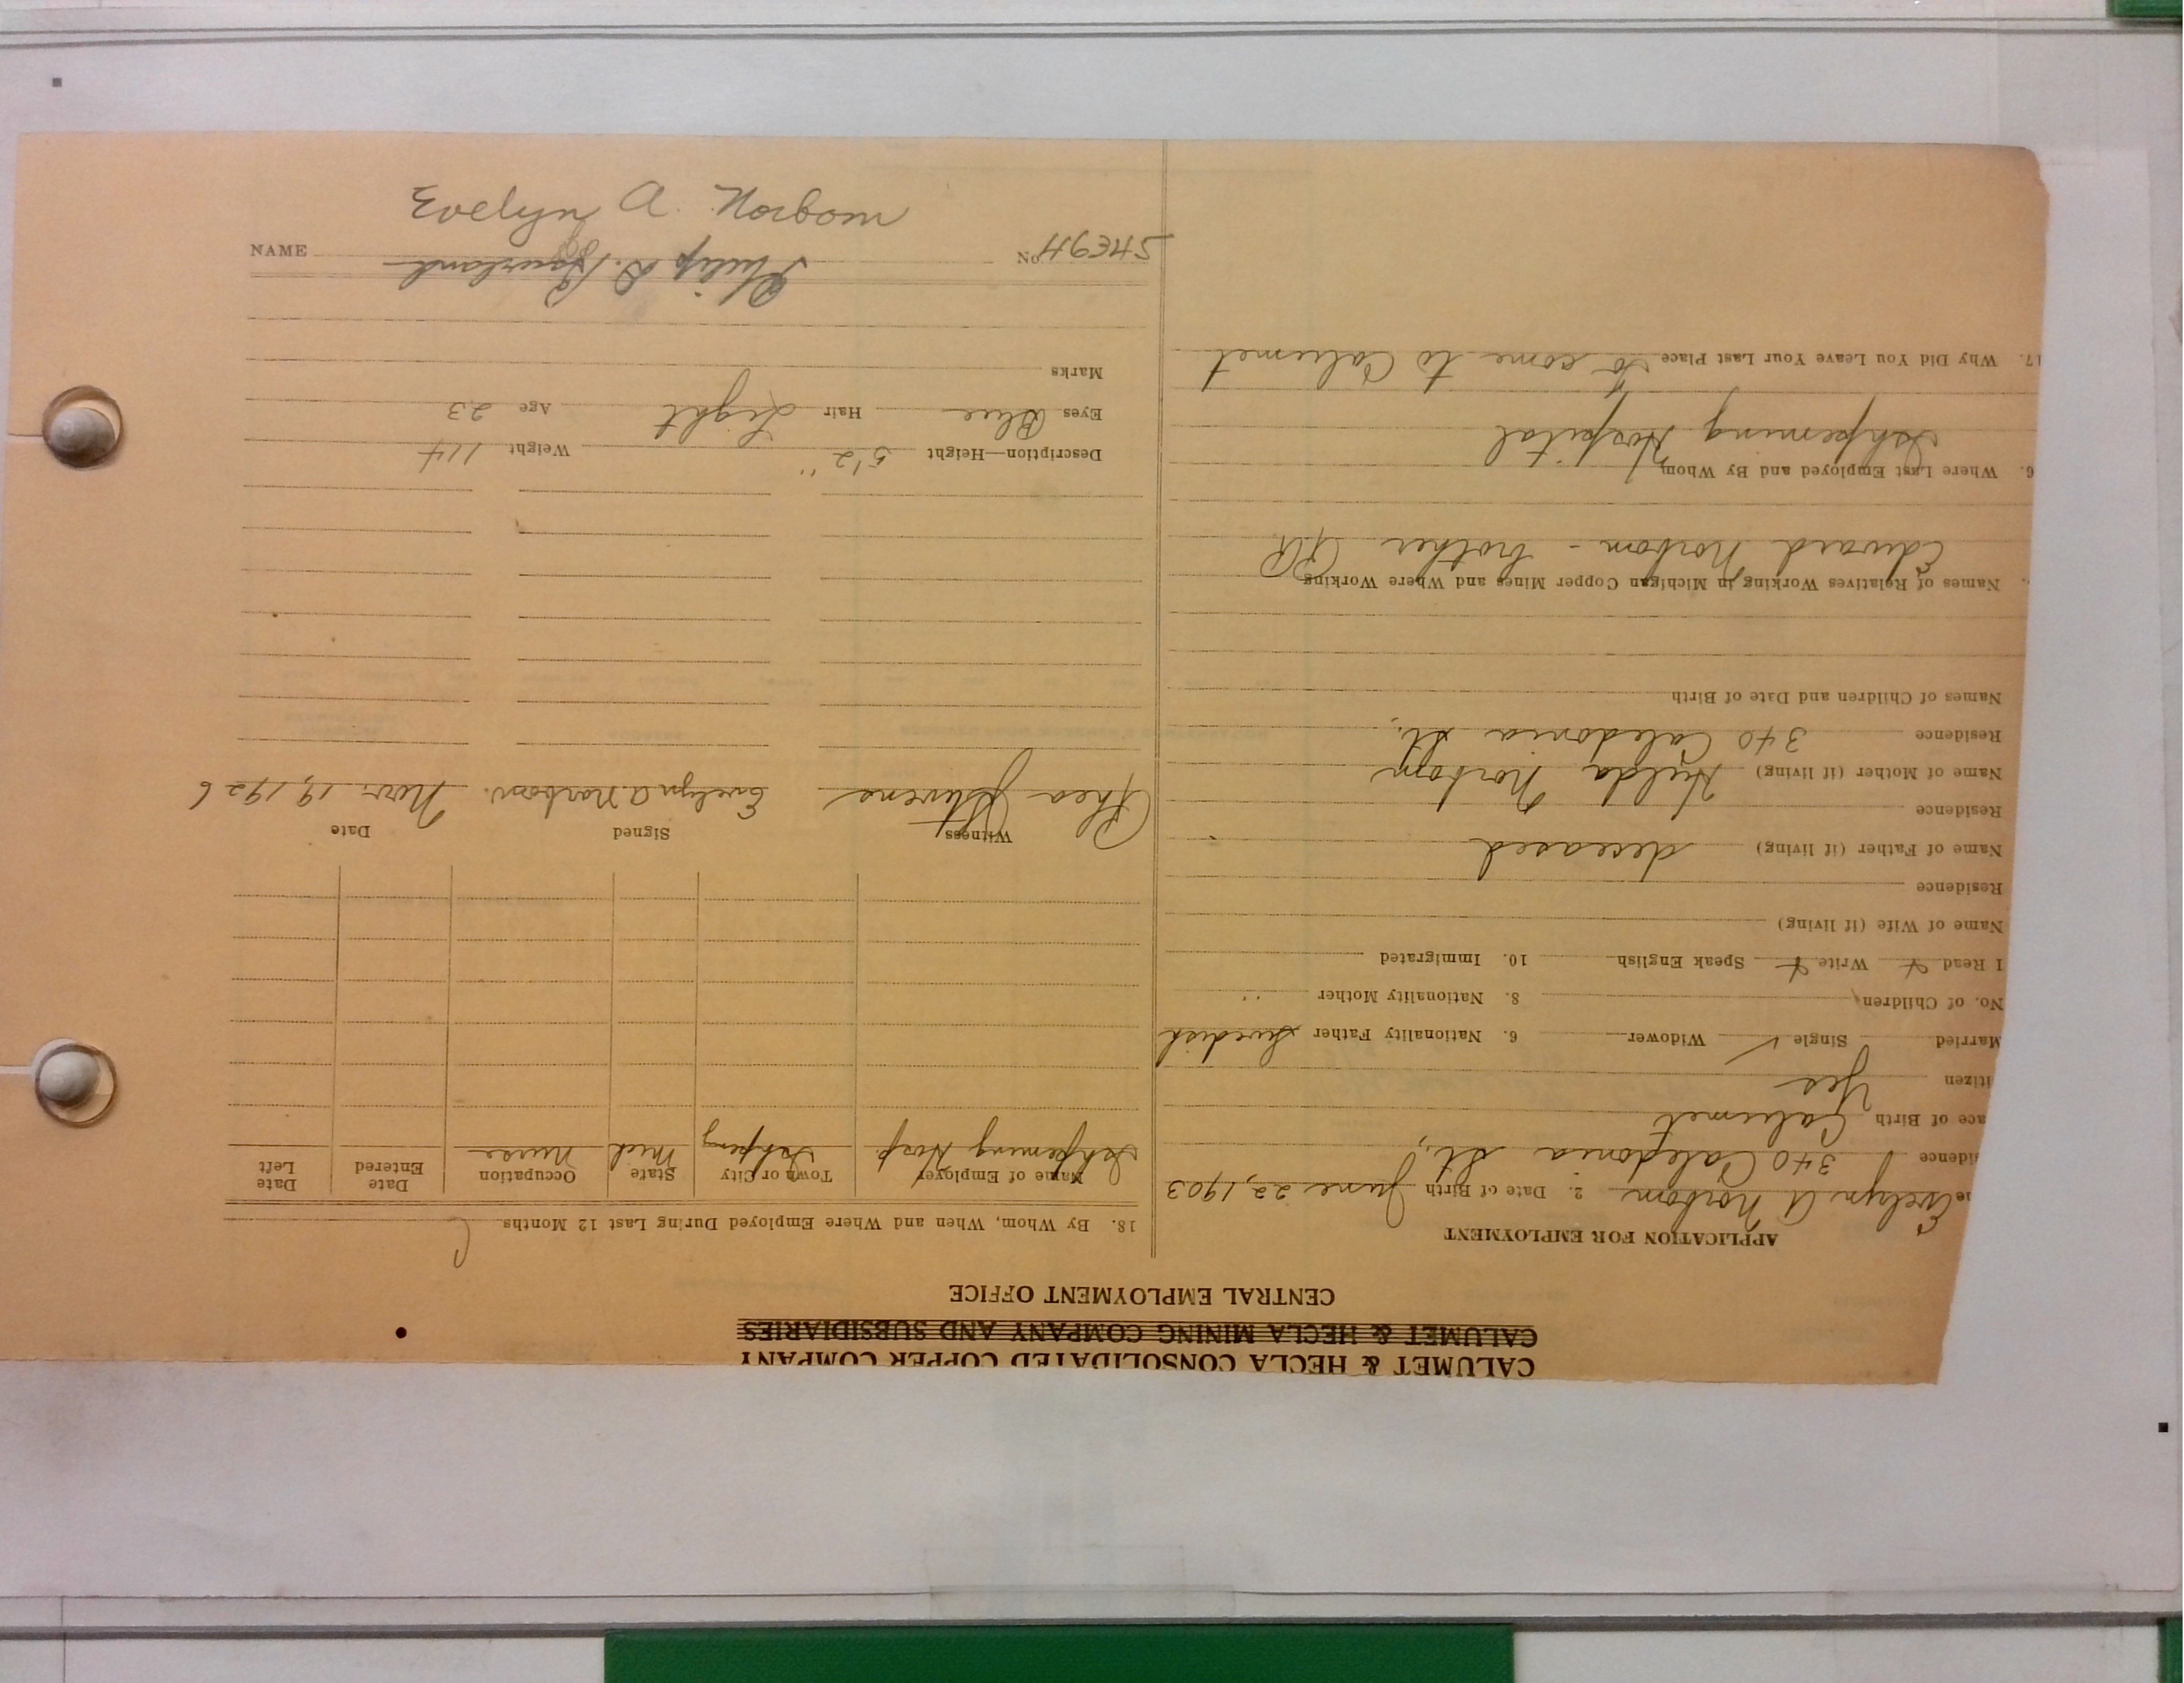 CALUMET & HECLA CONSOLIDATED COPPER COMPANY
CALUMET & HECLA MINING COMPANY AND SUBSIDIARIES
CENTRAL EMPLOYMENT OFFICE
APPLICATION FOR EMPLOYMENT
me Evelyn A Norbom 2. Date of Birth June 22, 1903
sidence 340 Caledonia St.,
ace of Birth Calumet
itizen Yes
Married Single ✓ Widower 6. Nationality Father Swedish
No. of Children 8. Nationality Mother "
I Read Write Speak English 10. Immigrated
Name of Wife (if living)
Residence
Name of Father (if living) deceased
Residence
Name of Mother (if living) Hulda Norbom
Residence 340 Caledonia St.,
Names of Children and Date of Birth
Names of Relatives Working in Michigan Copper Mines and Where Working
Edward Norbom - brother
6. Where Last Employed and By Whom
Ishpeming Hospital
17. Why Did You Leave Your Last Place to come to Calumet
18. By Whom, When and Where Employed During Last 12 Months
Name of Employer Town or City State Occupation Date Entered Date Left
Ishpeming Hosp. Ishpeming Mich Nurse
Witness Signed Date
Rhea Stevens Evelyn A Norbom. Nov. 19, 1926
Description—Height 5'2" Weight 114
Eyes Blue Hair Light Age 23
Marks
NAME No.
Evelyn A. Norbom